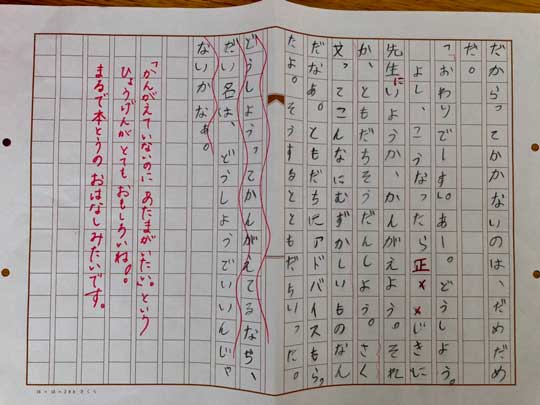 だからってかかないのは、だめだめ
だ。
「おわりでーすい。あー。どうしよう。
よし、こうなったら正××じきに
先生にいようか、かんがえよう。それ
か、ともだちそうだんしよう。さく
文ってこんなにむずかしいものなん
だなあ。ともだちにアドバイスもらっ
たよ。そうするとともだちいった。
どうしようってかんがえてるなら、
だい名は、どうしようでいいんじゃ
ないかなぁ。
「かんがえていないのに あたまがいたい。」という
ひょうげんが とても おもしろいね。
まるで本とうの おはなしみたいです。